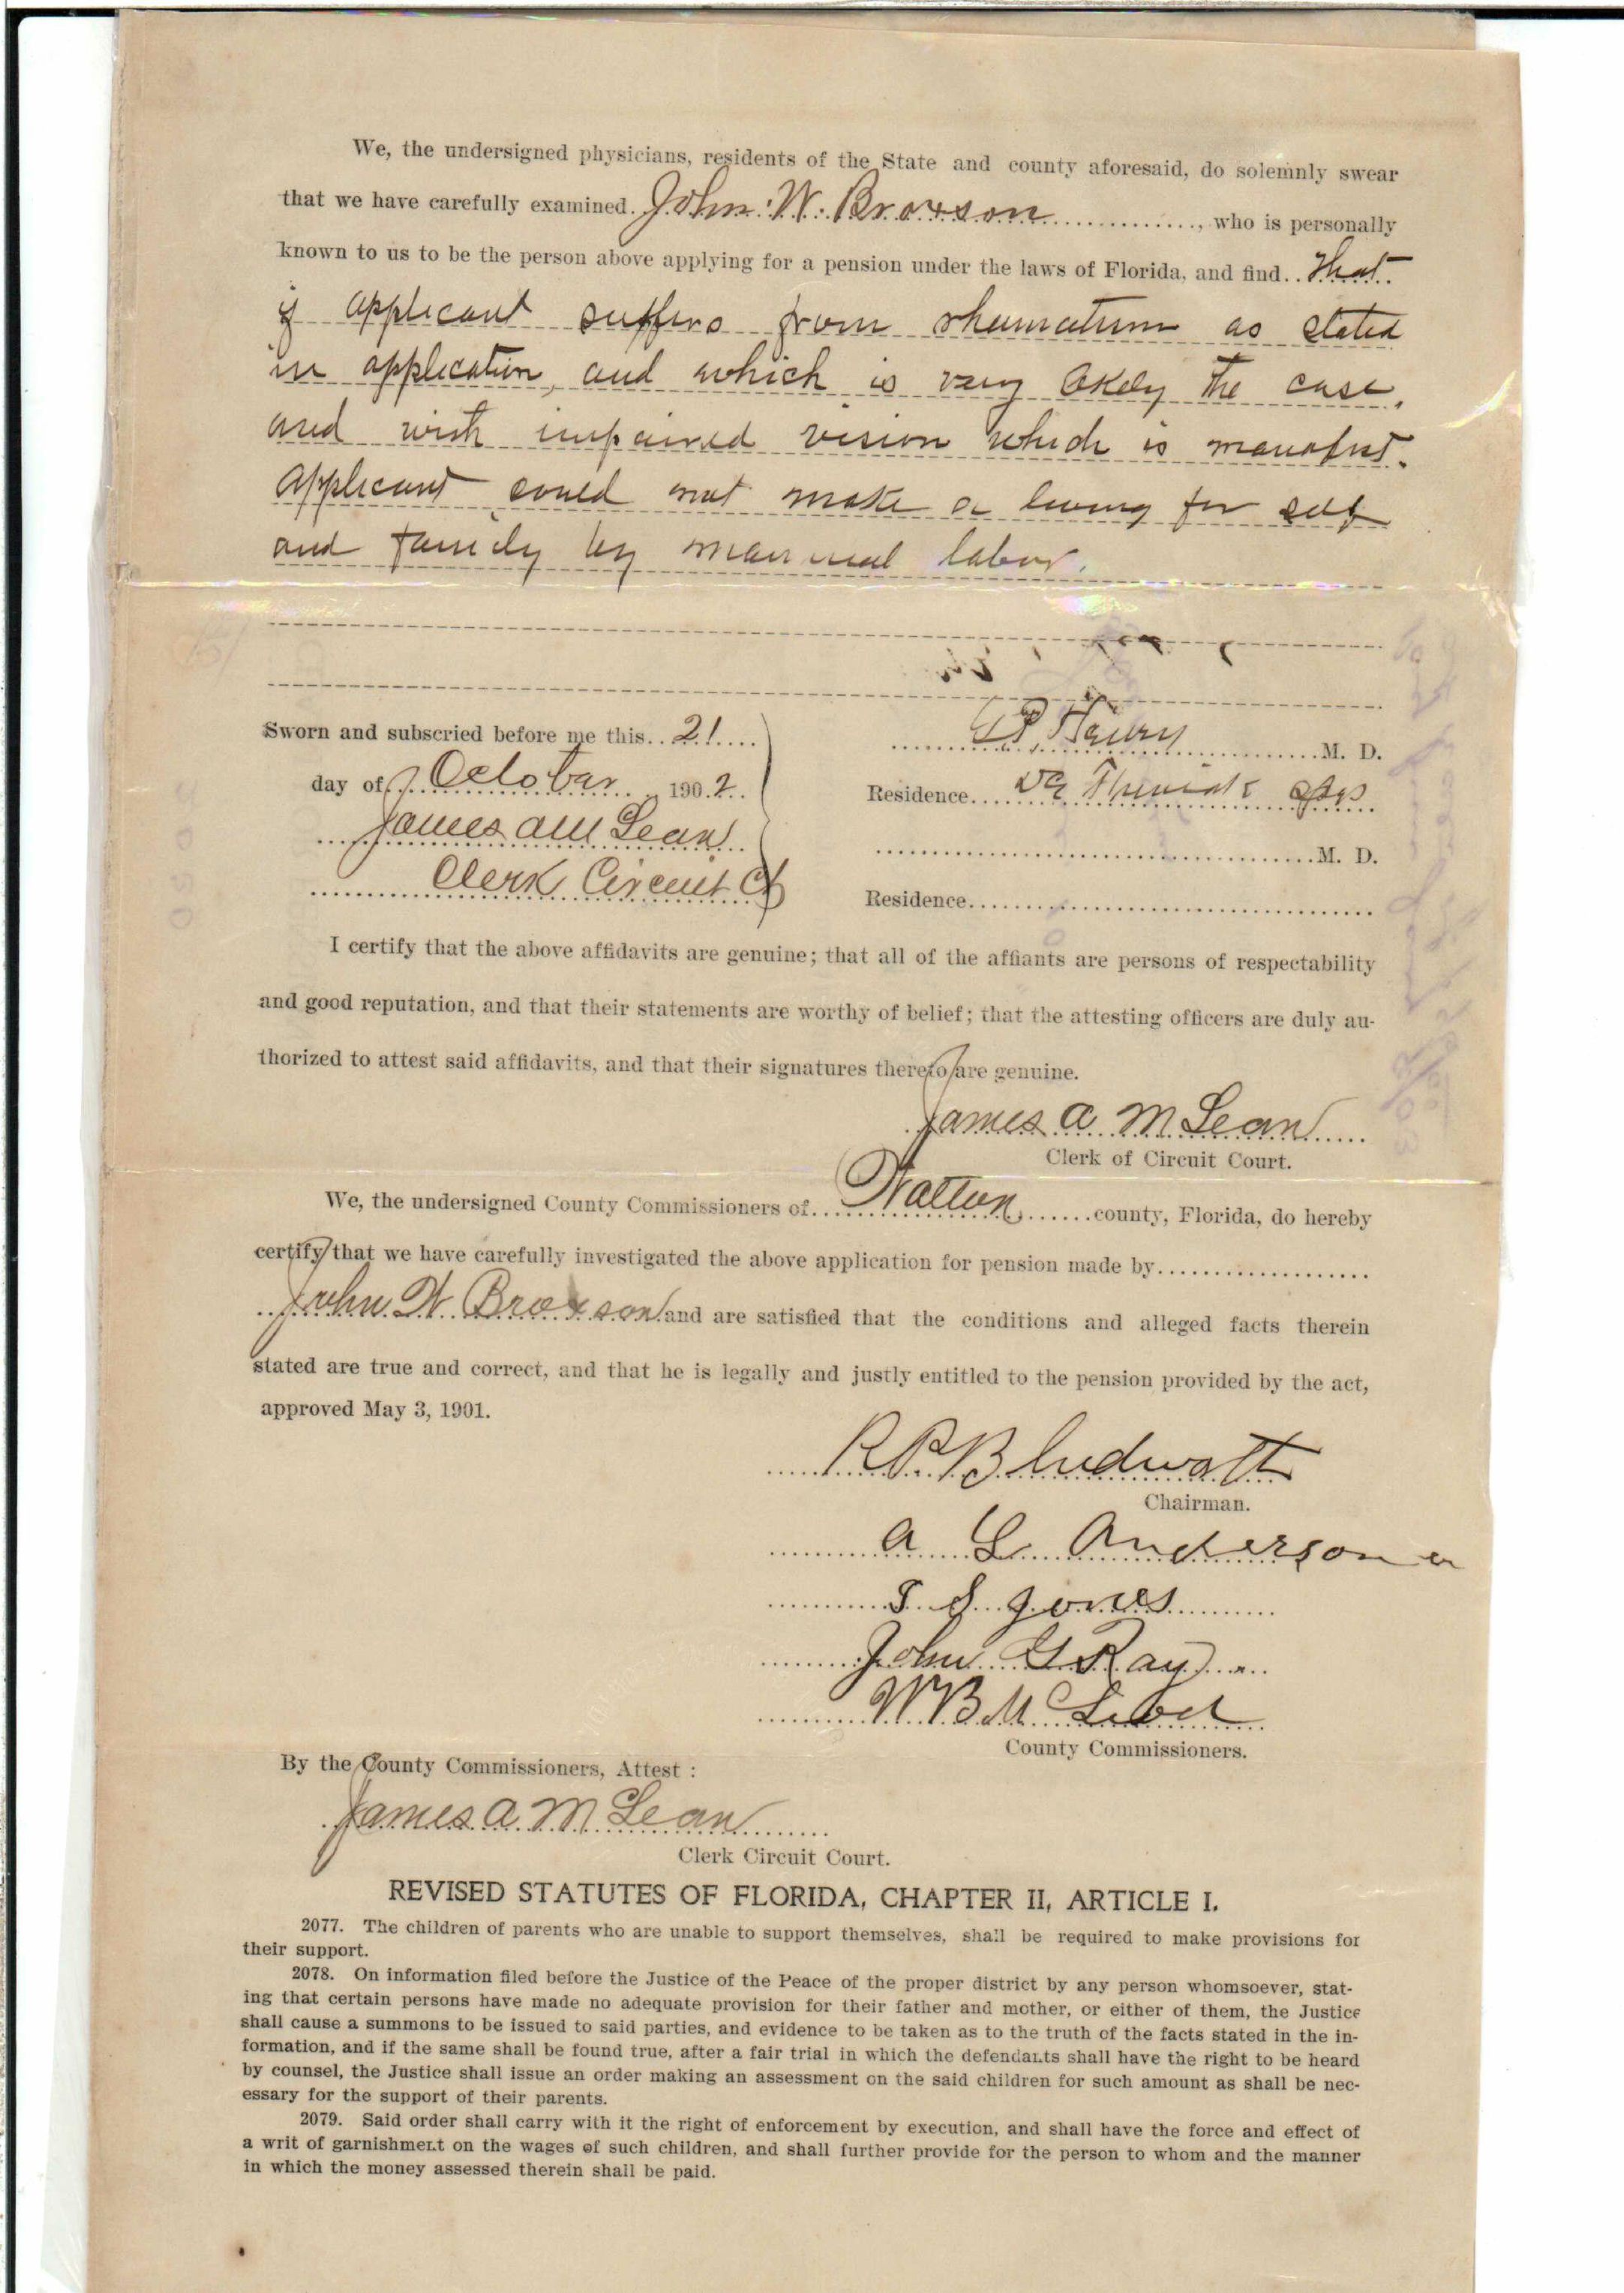 We, the undersigned physicians, residents of the State and county aforesaid, do solemnly swear
that we have carefully examined John W. Broxson, who is personally
known to us to be the person above applying for a pension under the laws of Florida, and find That
if applicant suffers from rheumatism as stated
in application, and which is very likely the case,
and with impaired vision which is manifest.
Applicant could not make a living for self
and family by manual labor.
Sworn and subscried before me this 21
M. D.
day of October 1902
Residence
James A McLean
M. D.
Clerk Circuit Ct
Residence
I certify that the above affidavits are genuine; that all of the affiants are persons of respectability
and good reputation, and that their statements are worthy of belief; that the attesting officers are duly au-
thorized to attest said affidavits, and that their signatures thereto are genuine.
James A McLean
Clerk of Circuit Court.
We, the undersigned County Commissioners of Walton county, Florida, do hereby
certify that we have carefully investigated the above application for pension made by
John W Broxson and are satisfied that the conditions and alleged facts therein
stated are true and correct, and that he is legally and justly entitled to the pension provided by the act,
approved May 3, 1901.
R P Bludwott
Chairman.
A L Anderson
T S Jones
John G Ray
W B McLeod
County Commissioners.
By the County Commissioners, Attest :
James A McLean
Clerk Circuit Court.
REVISED STATUTES OF FLORIDA, CHAPTER II, ARTICLE I.
2077. The children of parents who are unable to support themselves, shall be required to make provisions for
their support.
2078. On information filed before the Justice of the Peace of the proper district by any person whomsoever, stat-
ing that certain persons have made no adequate provision for their father and mother, or either of them, the Justice
shall cause a summons to be issued to said parties, and evidence to be taken as to the truth of the facts stated in the in-
formation, and if the same shall be found true, after a fair trial in which the defendants shall have the right to be heard
by counsel, the Justice shall issue an order making an assessment on the said children for such amount as shall be nec-
essary for the support of their parents.
2079. Said order shall carry with it the right of enforcement by execution, and shall have the force and effect of
a writ of garnishment on the wages of such children, and shall further provide for the person to whom and the manner
in which the money assessed therein shall be paid.